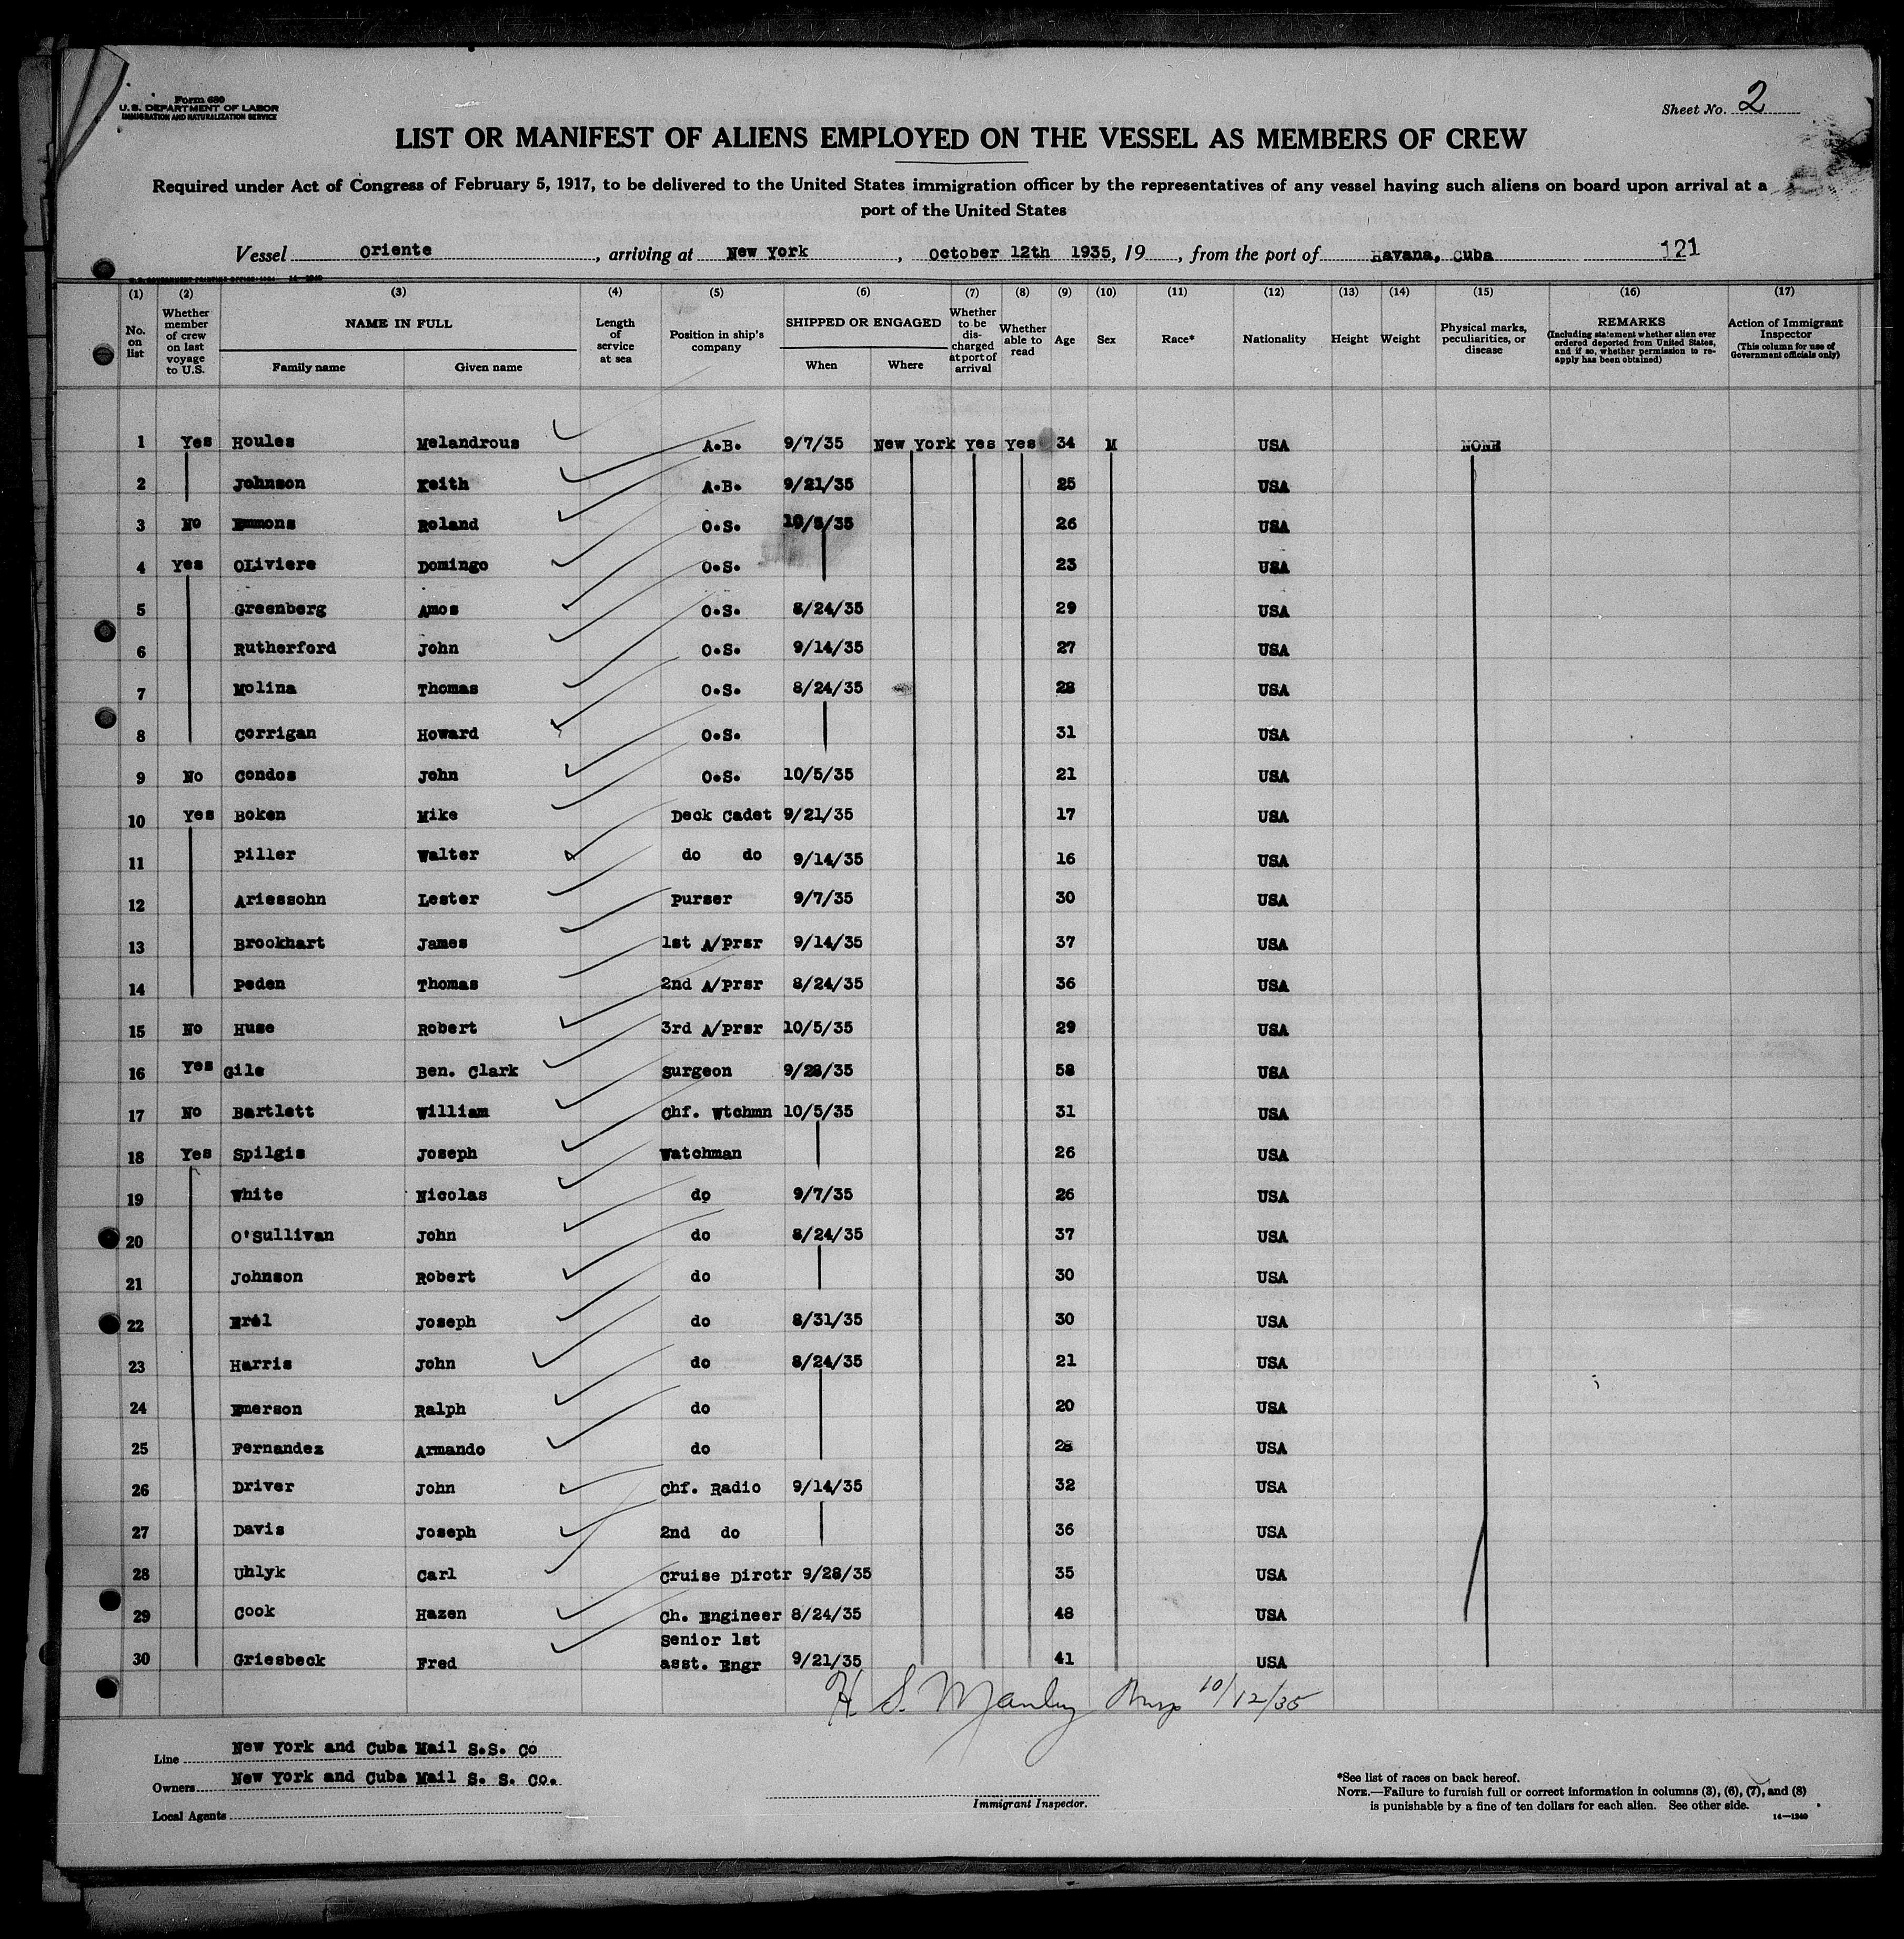 Form 680
U. S. DEPARTMENT OF LABOR
IMMIGRATION AND NATURALIZATION SERVICE
Sheet No. 2
LIST OR MANIFEST OF ALIENS EMPLOYED ON THE VESSEL AS MEMBERS OF CREW
Required under Act of Congress of February 5, 1917, to be delivered to the United States immigration officer by the representatives of any vessel having such aliens on board upon arrival at a
port of the United States
Vessel Oriente, arriving at New York, October 12th 1935, 19, from the port of Havana, Cuba 121
U. S. GOVERNMENT PRINTING OFFICE: 1934 14—1240
(1) (2) (3) (4) (5) (6) (7) (8) (9) (10) (11) (12) (13) (14) (15) (16) (17)
No. on list
Whether member of crew on last voyage to U.S.
NAME IN FULL
Family name
Given name
Length of service at sea
Position in ship's company
SHIPPED OR ENGAGED
When
Where
Whether to be discharged at port of arrival
Whether able to read
Age
Sex
Race*
Nationality
Height
Weight
Physical marks, peculiarities, or disease
REMARKS
(Including statement whether alien ever ordered deported from United States, and if so, whether permission to reapply has been obtained)
Action of Immigrant Inspector
(This column for use of Government officials only)
1 Yes Houles Melandrous A.B. 9/7/35 New York Yes Yes 34 M USA NONE
2 Johnson Keith A.B. 9/21/35 25 USA
3 No Emmons Roland O.S. 10/5/35 26 USA
4 Yes OLiviere Domingo O.S. 23 USA
5 Greenberg Amos O.S. 8/24/35 29 USA
6 Rutherford John O.S. 9/14/35 27 USA
7 Molina Thomas O.S. 8/24/35 28 USA
8 Corrigan Howard O.S. 31 USA
9 No Condos John O.S. 10/5/35 21 USA
10 Yes Boken Mike Deck Cadet 9/21/35 17 USA
11 Piller Walter do do 9/14/35 16 USA
12 Ariessohn Lester Purser 9/7/35 30 USA
13 Brookhart James 1st A/Prsr 9/14/35 37 USA
14 Peden Thomas 2nd A/Prsr 8/24/35 36 USA
15 No Huse Robert 3rd A/Prsr 10/5/35 29 USA
16 Yes Gile Ben. Clark Surgeon 9/28/35 58 USA
17 No Bartlett William Chf. Wtchmn 10/5/35 31 USA
18 Yes Spilgis Joseph Watchman 26 USA
19 White Nicolas do 9/7/35 26 USA
20 O'Sullivan John do 8/24/35 37 USA
21 Johnson Robert do 30 USA
22 Joseph do 8/31/35 30 USA
23 Harris John do 8/24/35 21 USA
24 Emerson Ralph do 20 USA
25 Fernandez Armando do 28 USA
26 Driver John Chf. Radio 9/14/35 32 USA
27 Davis Joseph 2nd do 36 USA
28 Uhlyk Carl Cruise Dirctr 9/28/35 35 USA
29 Cook Hazen Ch. Engineer 8/24/35 48 USA
30 Griesbeck Fred Senior 1st asst. Engr 9/21/35 41 USA
H. S. Manley 10/12/35
Line New York and Cuba Mail S.S. Co
Owners New York and Cuba Mail S. S. Co.
Local Agents
Immigrant Inspector.
*See list of races on back hereof.
NOTE.—Failure to furnish full or correct information in columns (3), (6), (7), and (8)
is punishable by a fine of ten dollars for each alien. See other side.
14—1240